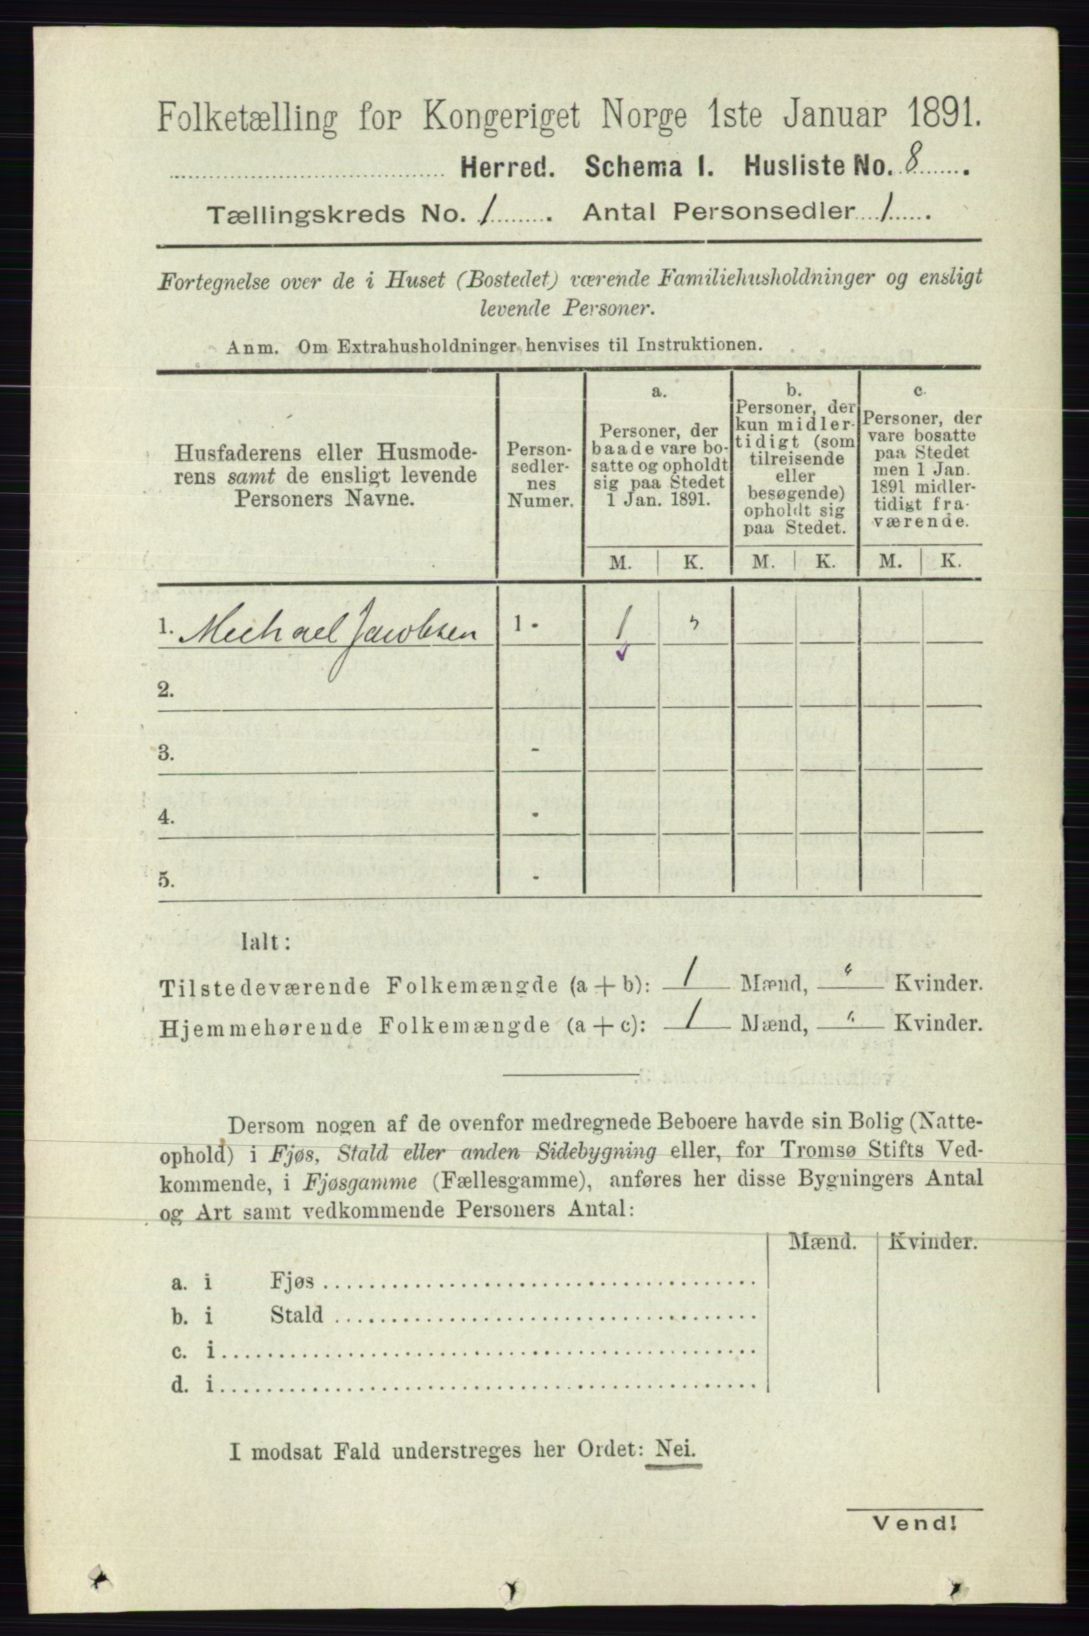 Folketælling for Kongeriget Norge 1ste Januar 1891.
Herred. Schema I. Husliste No. 8.
Tællingskreds No. 1. Antal Personsedler 1.
Fortegnelse over de i Huset (Bostedet) værende Familiehusholdninger og ensligt
levende Personer.
Anm. Om Extrahusholdninger henvises til Instruktionen.
Husfaderens eller Husmode-
rens samt de ensligt levende
Personers Navne.
Person-
sedler-
nes
Numer.
a.
Personer, der
baade vare bo-
satte og opholdt
sig paa Stedet
1 Jan. 1891.
b.
Personer, der
kun midler-
tidigt (som
tilreisende
eller
besøgende)
opholdt sig
paa Stedet.
c.
Personer, der
vare bosatte
paa Stedet
men 1 Jan.
1891 midler-
tidigt fra-
værende.
M. K. M. K. M. K.
1. Michael Jacobsen 1 - 1 "
2.
3. -
4. -
5. -
Ialt:
Tilstedeværende Folkemængde (a + b): 1 Mænd, " Kvinder.
Hjemmehørende Folkemængde (a + c): 1 Mænd, " Kvinder.
Dersom nogen af de ovenfor medregnede Beboere havde sin Bolig (Natte-
ophold) i Fjøs, Stald eller anden Sidebygning eller, for Tromsø Stifts Ved-
kommende, i Fjøsgamme (Fællesgamme), anføres her disse Bygningers Antal
og Art samt vedkommende Personers Antal:
Mænd. Kvinder.
a. i Fjøs
b. i Stald
c. i
d. i
I modsat Fald understreges her Ordet: Nei.
Vend!